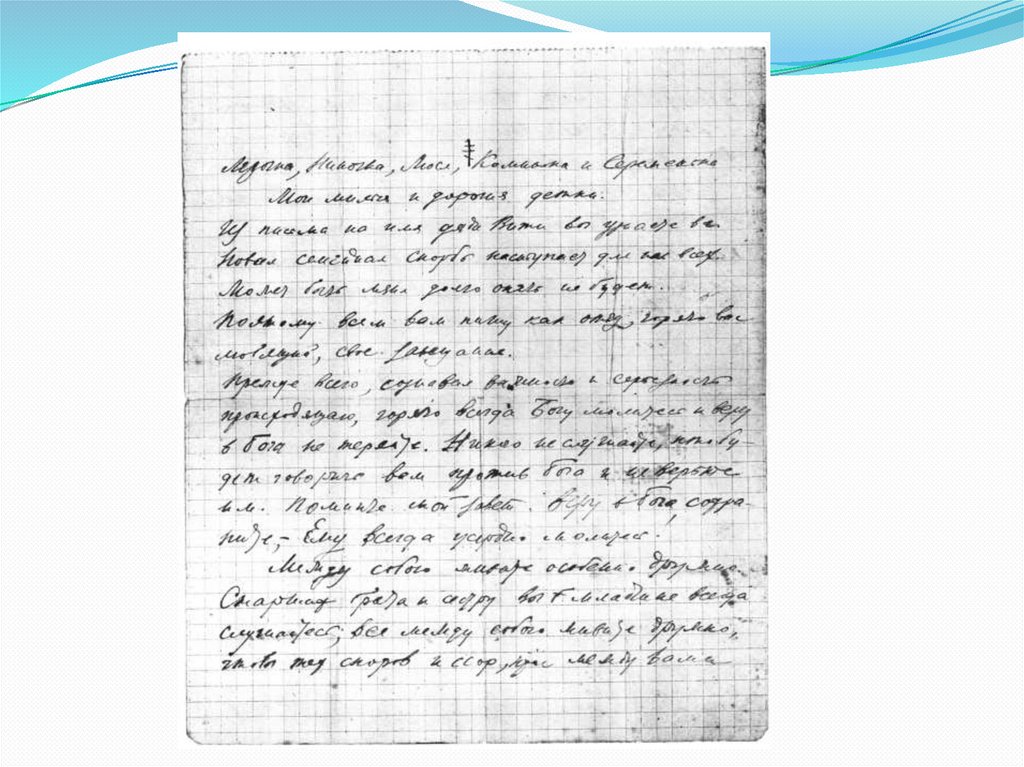 Ниночка, Люся, Колинька и Сереженька
Мои милые и дорогие детки.
Из письма на имя дяди Вити вы узнаете все.
Новая семейная скорбь наступает для нас всех.
Может быть меня долго опять не будет.
Поэтому всем вам пишу как отец, горячо вас
любящий, свое завещание.
Прежде всего, сознавая важность и серьезность
происходящаго, горячо всегда Богу молитесь и веру
в Бога не теряйте. Никого не слушайте, кто бу-
дет говорить вам против Бога и не верьте
им. Помните мой завет. Веру в Бога сохра-
ните, – Ему всегда усердно молитесь.
Между собою живите особенно дружно.
Старших брата и сестру вы младшие всегда
слушайтесь; все между собою живите дружно,
чтобы споров и ссор, между вами